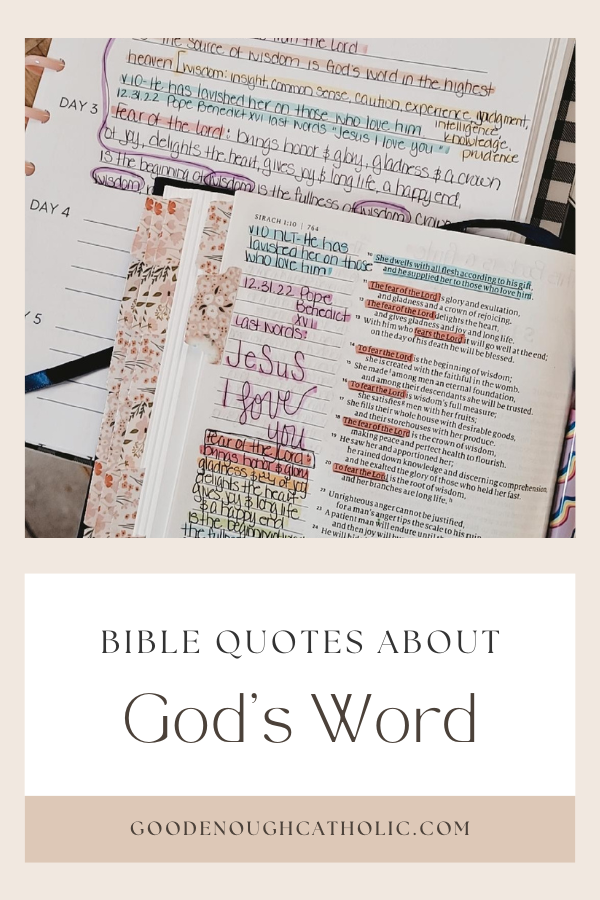 the source of wisdom is God's word in the highest
heaven [wisdom: insight, common sense, caution, experience, judgment,
intelligence,
knowledge,
prudence
v10-He has lavished her on those who love him
12.31.22 Pope Benedict XVI last words "Jesus I love you"
DAY 3
fear of the Lord: brings honor & glory, gladness & a crown
of joy, delights the heart, gives joy & long life, a happy end,
is the beginning of wisdom, is the fullness of wisdom, crown
wisdom
DAY 4
5
SIRACH 1:10 | 764
v10 NLT-He has
lavished her on those
who love him
12.31.22 Pope
Benedict
XVI
Last Words:
Jesus
I love
you
fear of the Lord:
brings honor & glory
gladness & joy
delights the heart
gives joy & long life
& a happy end
is the beginning
the fullness
She dwells with all flesh according to his gift,
and he supplied her to those who love him.
The fear of the Lord is glory and exultation,
and gladness and a crown of rejoicing.
The fear of the Lord delights the heart,
and gives gladness and joy and long life.
With him who fears the Lord it will go well at the end;
on the day of his death he will be blessed.
14 To fear the Lord is the beginning of wisdom;
she is created with the faithful in the womb.
15 She made among men an eternal foundation,
and among their descendants she will be trusted.
16 To fear the Lord is wisdom's full measure;
she satisfies men with her fruits;
17 She fills their whole house with desirable goods,
and their storehouses with her produce.
18 The fear of the Lord is the crown of wisdom,
making peace and perfect health to flourish.
19 He saw her and apportioned her;
he rained down knowledge and discerning comprehension,
and he exalted the glory of those who held her fast.
20 To fear the Lord is the root of wisdom,
and her branches are long life.
22 Unrighteous anger cannot be justified,
for a man's anger tips the scale to his ruin.
23 A patient man will endure until the
and then joy will
24 He will hi
BIBLE QUOTES ABOUT
God's Word
GOODENOUGHCATHOLIC.COM